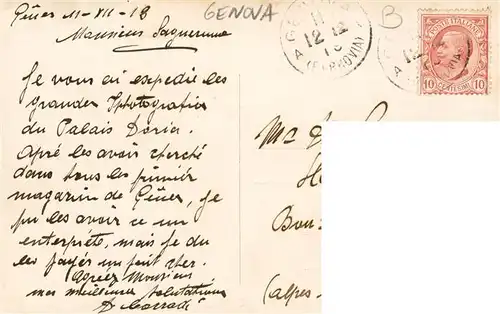 Gênes 11-XII-13
GENOVA
B
Monsieur
Je vous ai expedié les
grandes Photografia
du Palais Doria.
Apré les avoir cherché
dans tous les premier
magasin de Gênes, je
pu les avoir ce un
enterpiéte, mais je du
les payer un peut cher.
Agréez Monsieur
mes meilleurs salutations
GENOVA
11
12 12
13
(FERROVIA)
POSTE ITALIANE
10 CENTESIMI 10
Mr
Bou
(alpes-